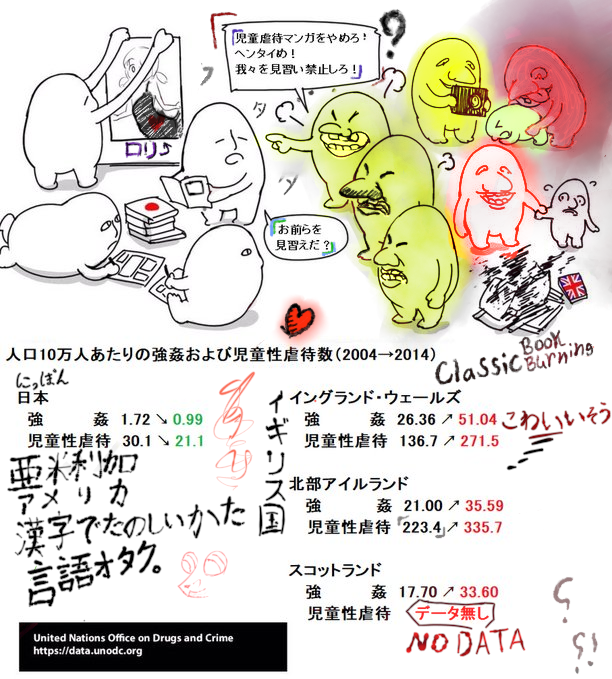 『児童虐待マンガをやめろ！
ヘンタイめ！
我々を見習い禁止しろ！』
?
ロリ♪
フ
タ
タ
ッ
『お前らを
見習えだ？』
人口10万人あたりの強姦および児童性虐待数（2004→2014）
Classic Book Burning
にっぽん
日本
強　　姦　1.72 ↘ 0.99
児童性虐待　30.1 ↘ 21.1
イギリス国
イングランド・ウェールズ
強　　姦　26.36 ↗ 51.04
児童性虐待　136.7 ↗ 271.5
こわいいそう
北部アイルランド
強　　姦　21.00 ↗ 35.59
児童性虐待「223.4」↗ 335.7
スコットランド
強　　姦　17.70 ↗ 33.60
児童性虐待　データ無し
NO DATA
亜米利加
アメリカ
漢字でたのしいかた
言語オタク。
United Nations Office on Drugs and Crime
https://data.unodc.org